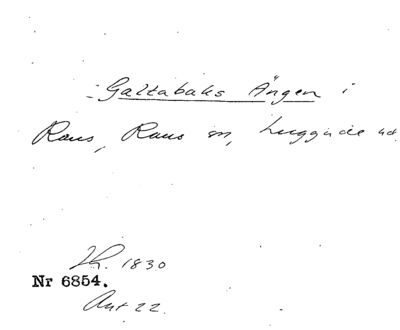 Galtabaks Ängen i
Raus, Raus sn, Luggude hd.
1830
Nr 6854.
Akt 22.